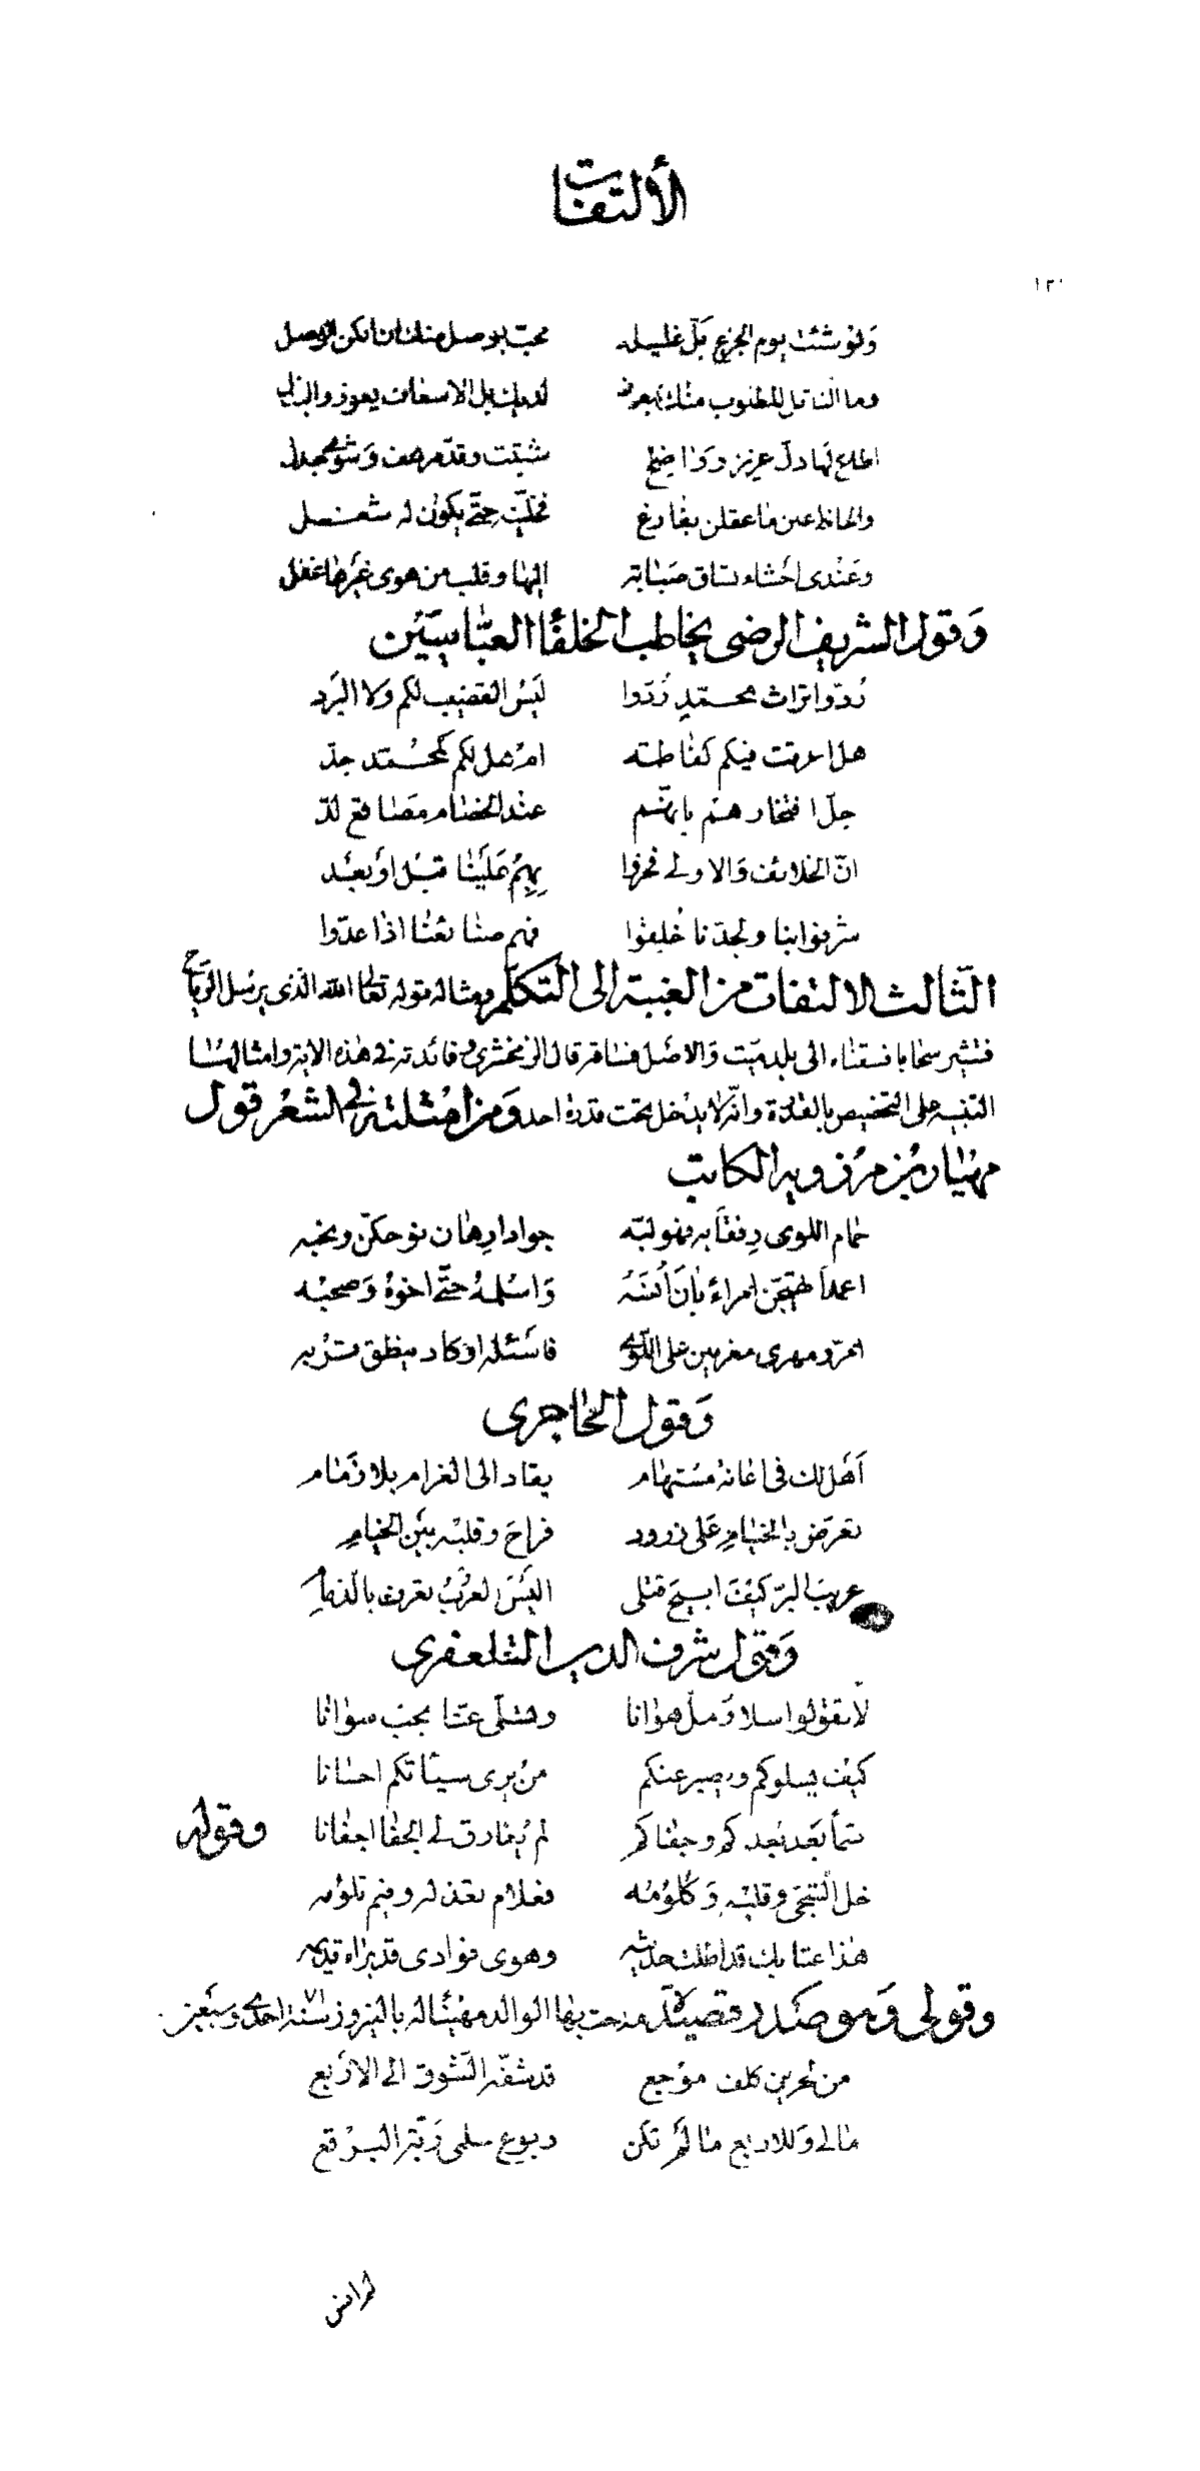 الألتفات
١٣٠
وَلو شئت يوم الجزع بَلّ غليله محبّ بوصل منك ان امكن الوصل
وما النائل المطلوب منك بمعوز لديك بل الاسعاف يعوز والبذل
اطاع لها دلّ عزيز وواضح شتيت وقدّ مرهف وَشوى جدل
والحاظ عين ما علقن بفارغ فخلّيته حتّى يكون له شغل
وعَنْدى احْشاء تساق صَبابة اليها وقلب من هوى غيرها غفل
وَقول الشريف الرضى يخاطب الخلفاَ العبّاسيّين
رُدّوا تراث محمّدٍ رُدّوا ليَسُ القضيب لكم ولا البَرد
هل اعرقت فيكم كفاطمة امْ هل لكم كمحُمّد جدّ
جلّ افتخارهم بانّهم عند الخصام مصاقع لدّ
انّ الخلائف وَالاولى فخروا بهِمُ عَلَيْنا قبْل اَو بعْد
شرفوا بنا ولجدّنا خُلِقوا فهم صنائعنا اذا عدّوا
الثّالث الالتفات من الغيبة الى التكلّم ومثاله قوله تعالى اللّه الّذى يرسل الرّياح
فتثير سحابا فسقناه الى بلد ميّت وَالاصْل فساقه قال الزمخشرى وفائدته فى هذه الاية وامثالها
التنبيه على التخصيص بالقدرة وانّه لا يدخل تحت قدرة احد وَمن امْثلته فى الشعْر قول
مهيْار بْن مرْزويه الكاتب
حمام اللوى رِفقًا به فهو لبّه جوادا رِهان نوحكنّ ونحبه
اعمدًا تهيّجن امراءً بانَ اُنسَهُ وَاسْلمهُ حتّى اخوهُ وَصحبْه
امرّ ومهرى مغرمين على اللّوى فاسْئله او كاد ينطق تربه
وَقول الحاجرى
اَهَل لك فى اغاثة مسْتهام يقاد الى الغرام بلا زمام
تعرّض بالخيامِ عَلى زرود فراحَ وقلبْه بيْن الخيامِ
عريب البرّ كيْفَ ابيحَ قتلى اليْسَ العرْبُ تعرف بالذمامِ
وَقول شرف الدين التلعفرى
لا تقولوا سلا وَملّ هوانا وتسلّى عنّا بحبّ سوانا
كيْف يسلوكم ويصبر عنكم من يرى سيئاتكم احسانا
بعْد كم وجفاكم لم يفارق لى الجفا اجفانا وقوله
خل التّجنّى وقلبْه وَكلوْمه فعلام تعذله وفيم تلومه
هذا عتابك قد اطلت حديثه وهوى فؤادى قد براه قديمه
وقولى وَهو صَدر قصيدة مدحت بها الوالد مهنّئا له بالنيروز سنة احدى وسبْعين
من لحزين كلف موْجع قد شفّه الشّوق الى الارْبع
مالى وَللاربع ما لَمْ تكن ربوع سلمى ربّة البرقع